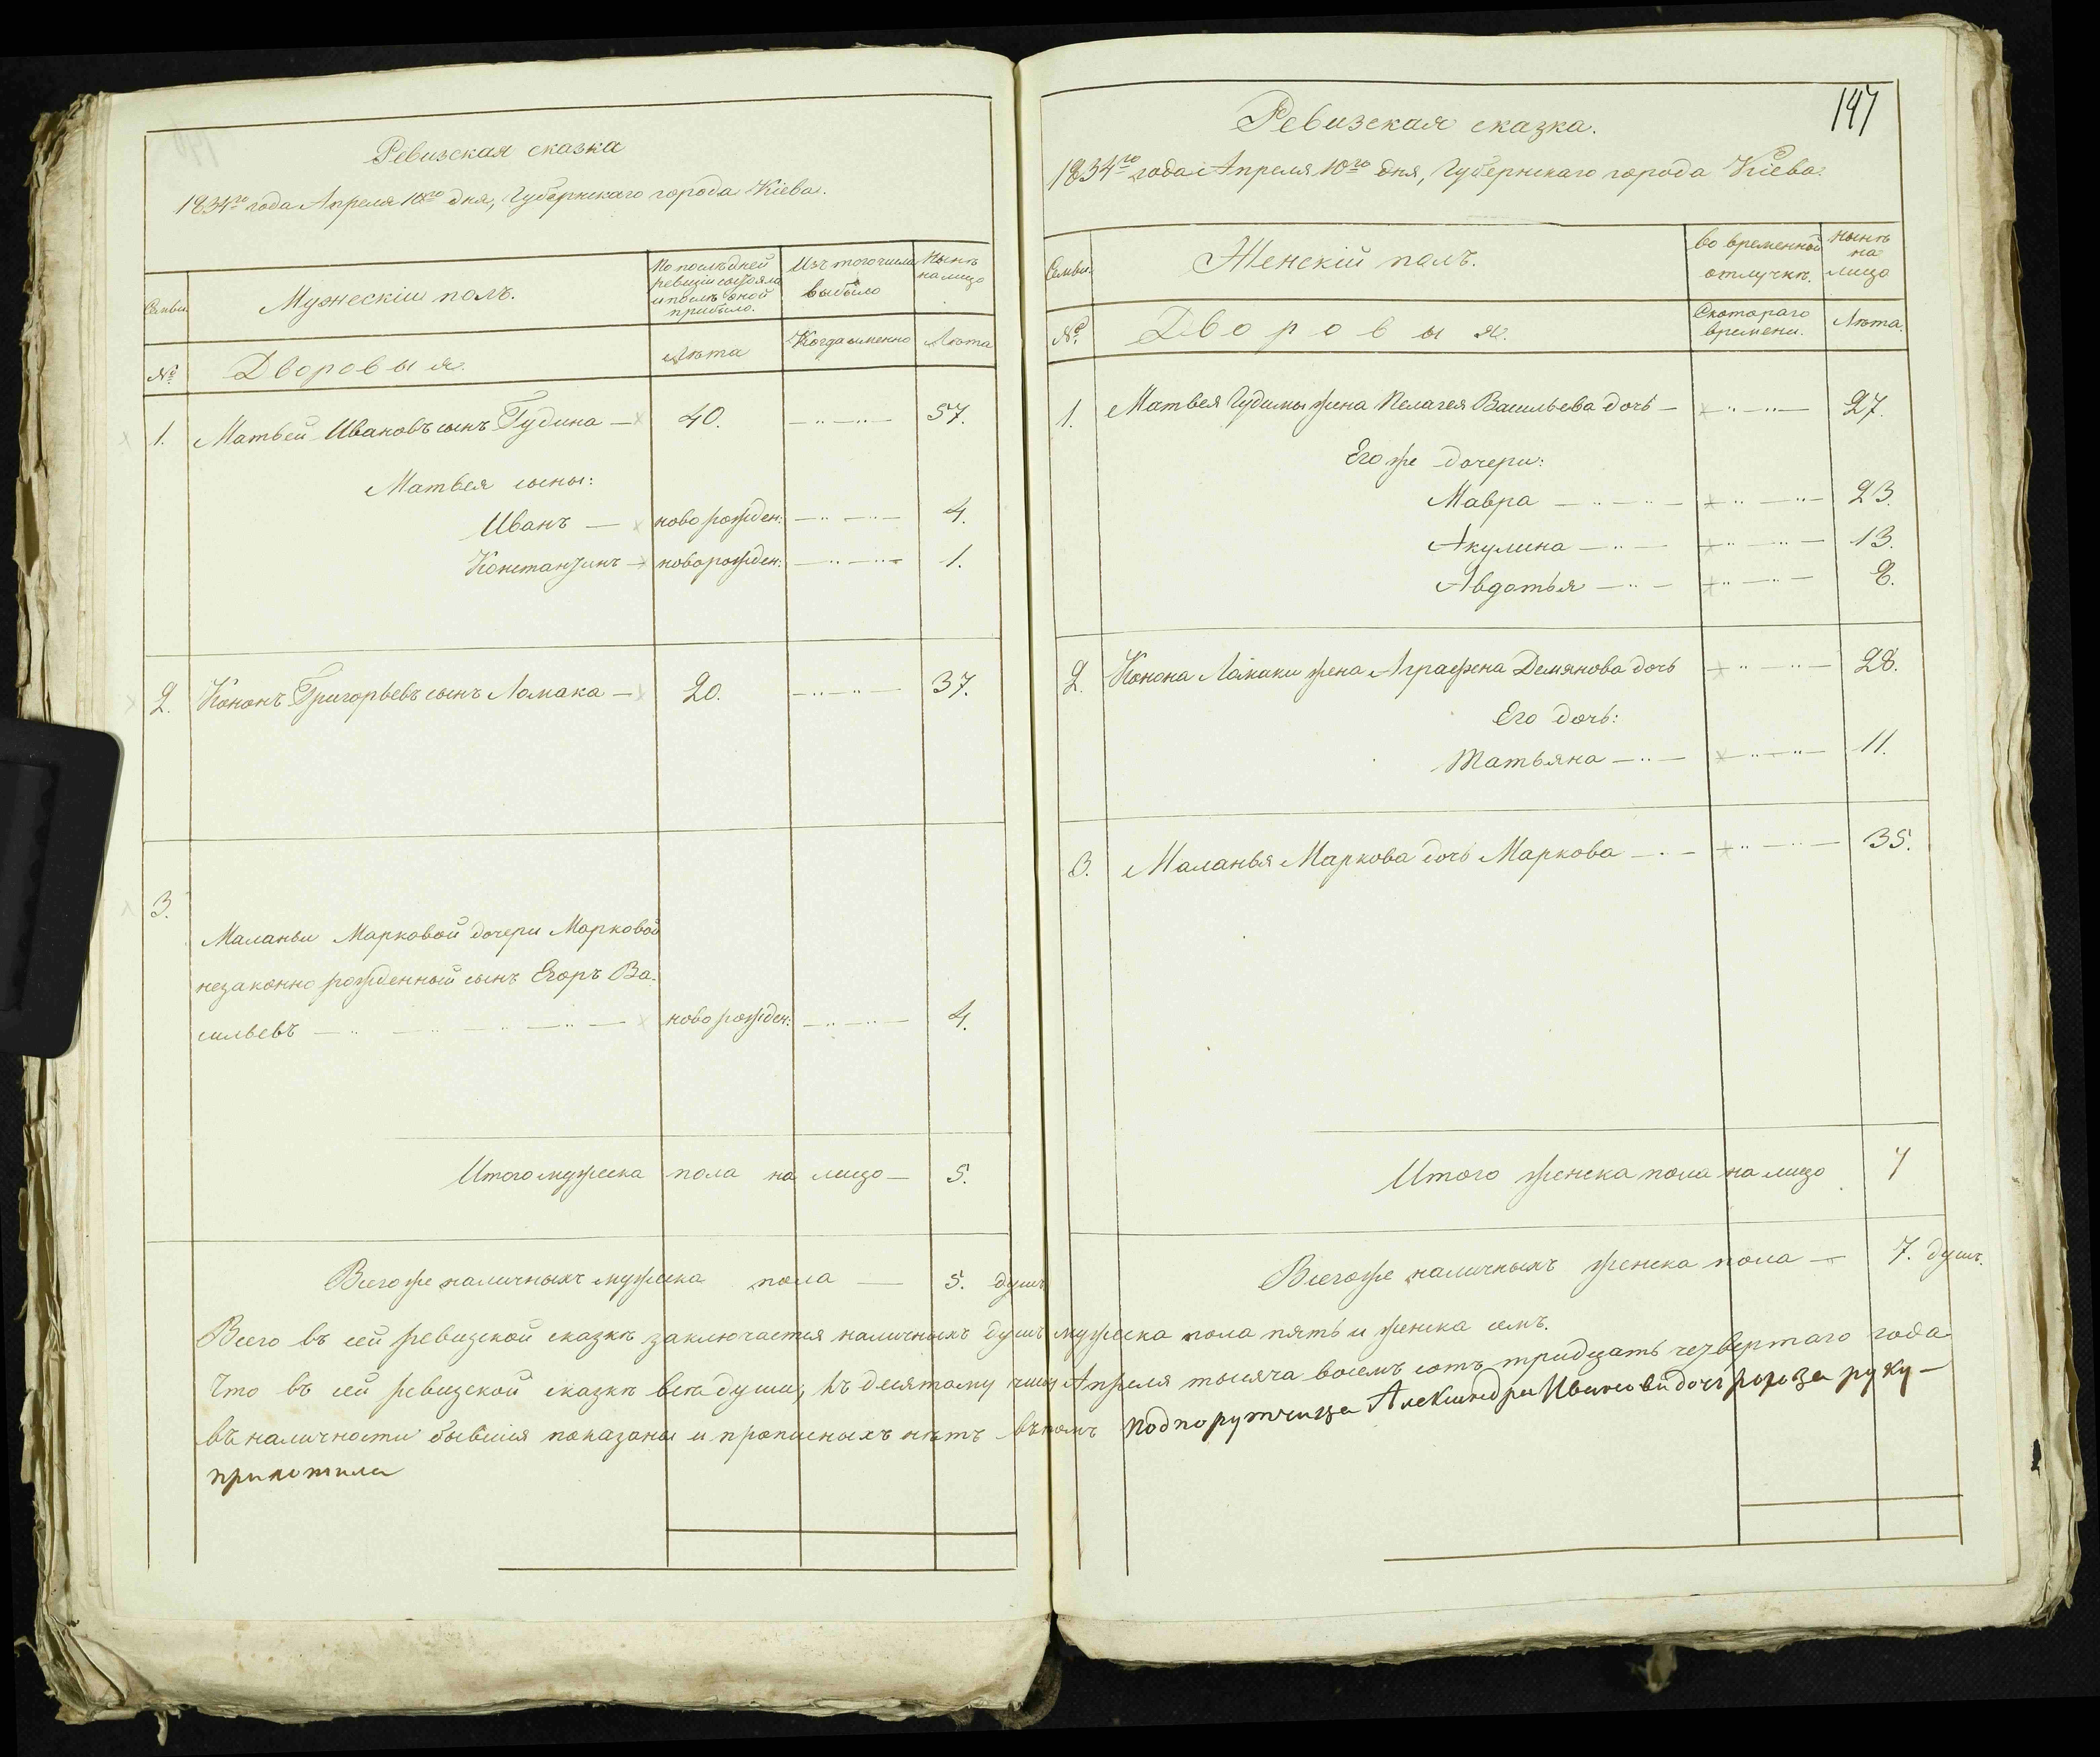 Ревизская сказка
1834го года Апреля 10го дня, Губернскаго города Кіева.
Семьи.
Мужескій полъ.
По послѣдней
ревизіи состояло
и послѣ оной
прибыло.
Изъ того числа
выбыло
Нынѣ
на лицо
№
Дворовыя.
Лѣта
Когда именно
Лѣта
1. Матвей Ивановъ сынъ Гудима — 40. 57.
Матвея сыны:
Иванъ — новорожден: 4.
Константинъ — новорожден: 1.
2. Кононъ Григорьевъ сынъ Ломака — 20. 37.
3.
Маланьи Марковой дочери Марковой
незаконно рожденный сынъ Егоръ Ва-
сильевъ — новорожден: 4.
Итого мужеска пола на лицо — 5.
Всего же наличныхъ мужеска пола — 5. душъ
147
Ревизская сказка.
1834го года Апреля 10го дня, Губернскаго города Кіева.
Семьи.
Женскій полъ.
во временной
отлучкѣ.
Нынѣ
на
лицо
№
Дворовыя.
Скотораго
времени.
Лѣта.
1. Матвея Гудимы жена Пелагея Васильева дочь — 27.
Его же дочери:
Мавра — 23.
Акулина — 13.
Авдотья — 8.
2. Конона Ломаки жена Аграфена Демянова дочь 28.
Его дочь:
Татьяна — 11.
3. Маланья Маркова дочь Маркова — 35.
Итого женска пола на лицо 7
Всего же наличныхъ женска пола — 7. душъ.
Всего въ сей ревизской сказкѣ заключается наличныхъ душъ мужеска пола пять и женска семь.
Что въ сей ревизской сказкѣ всѣ души, къ десятому числу Апреля тысяча восемь сотъ тридцать четвертаго года
въ наличности бывшія показаны и прописныхъ нѣтъ вътомъ подпорутчица Александра Иванова дочь руку-
приложила